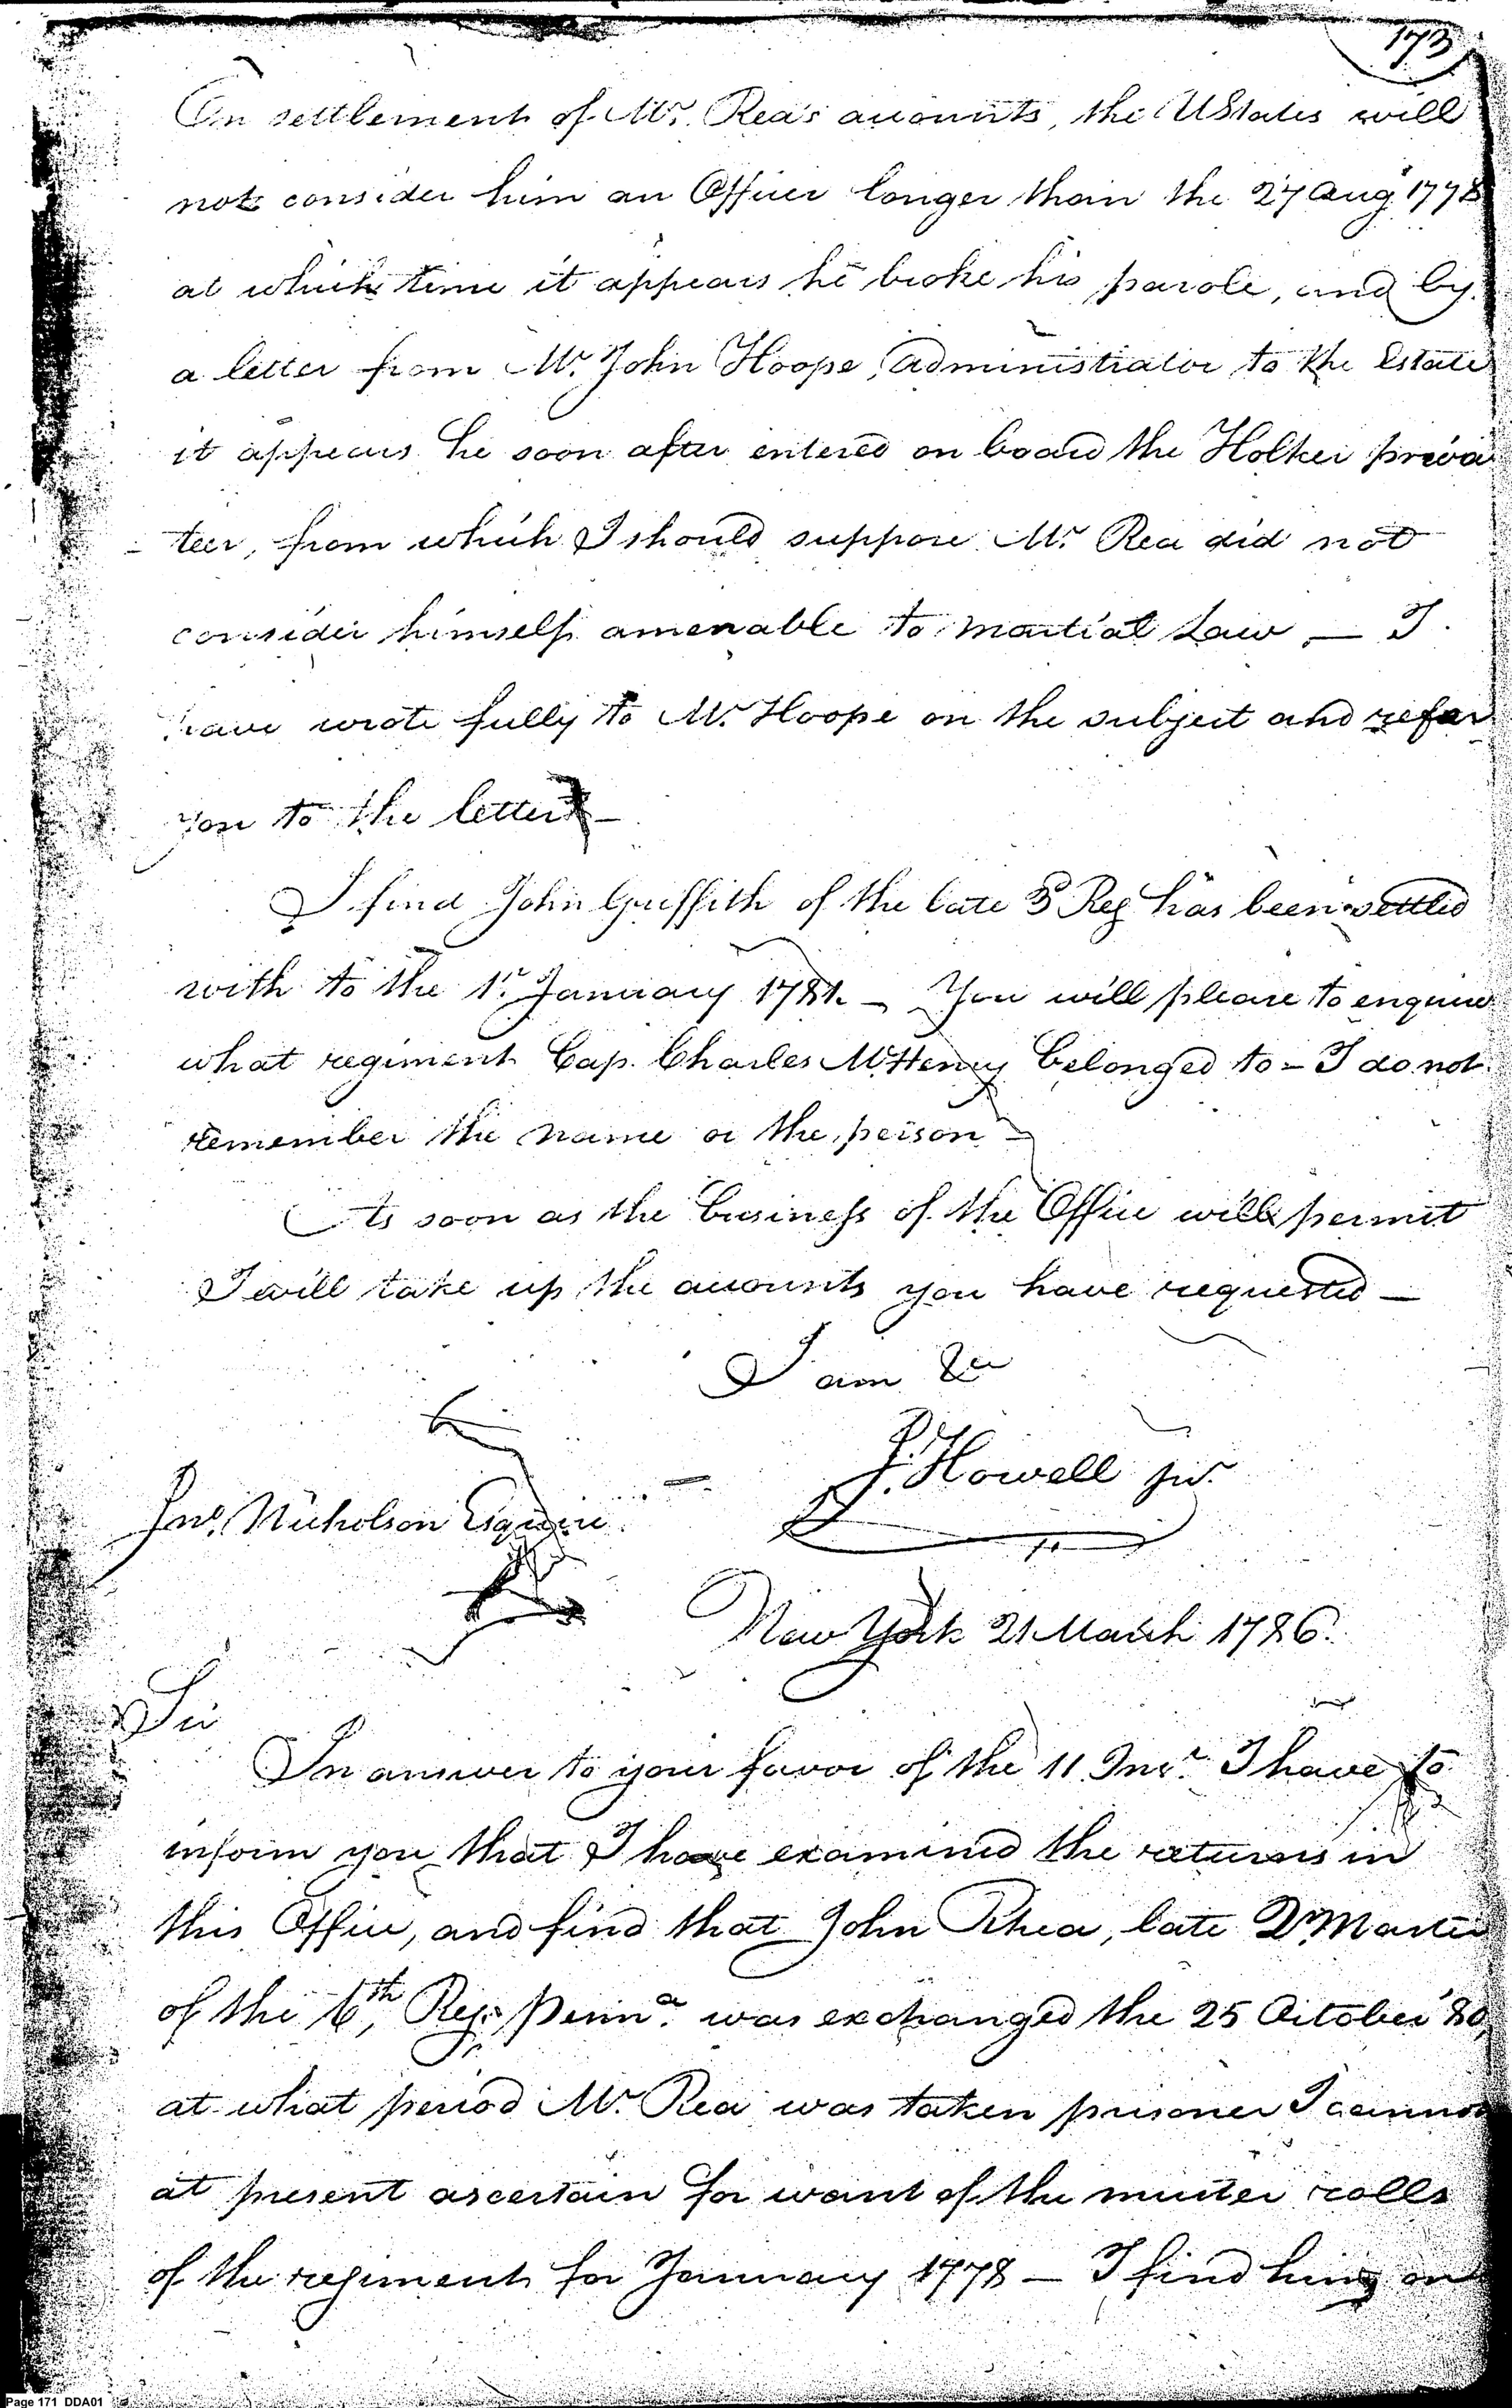 173
On settlement of Mr. Rea's accounts, the UStates will
not consider him an Officer longer than the 27 Aug 1778
at which time it appears he broke his parole, and by
a letter from Mr. John Hoope, Administrator to the Estate
it appears he soon after entered on board the Holker priva
-teer, from which I should suppose Mr. Rea did not
consider himself amenable to martial Law — I
have wrote fully to Mr. Hoope on the subject and refer
you to the letter —
I find John Griffith of the late 3d Reg has been settled
with to the 1st January 1781. — You will please to enquire
what regiment Cap. Charles McHenry belonged to — I do not
remember the name or the person —
As soon as the business of the Office will permit
I will take up the accounts you have requested —
I am &c
J. Howell jur.
Jno. Nicholson Esquire
New York 21 March 1786.
Sir
In answer to your favor of the 11 Inst. I have to
inform you that I have examined the returns in
this Office, and find that John Rhea, late Qr. Master
of the 6th, Reg. Penna. was exchanged the 25 October '80,
at what period Mr. Rea was taken prisoner I cannot
at present ascertain for want of the muster rolls
of the regiment for January 1778 — I find him on
Page 171 DDA01